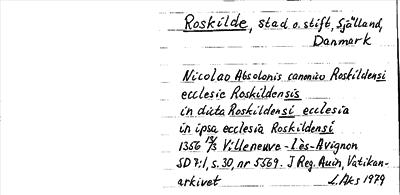 Roskilde, stad o. stift, Själland,
Danmark
Nicolao Absolonis canonico Roskildensi
ecclesie Roskildensis
in dicta Roskildensi ecclesia
in ipsa ecclesia Roskildensi
1356 19/3 Villeneuve-Lès-Avignon
SD 7:1, s. 30, nr 5569. I Reg. Avin, Vatikan-
arkivet L. Aks 1979